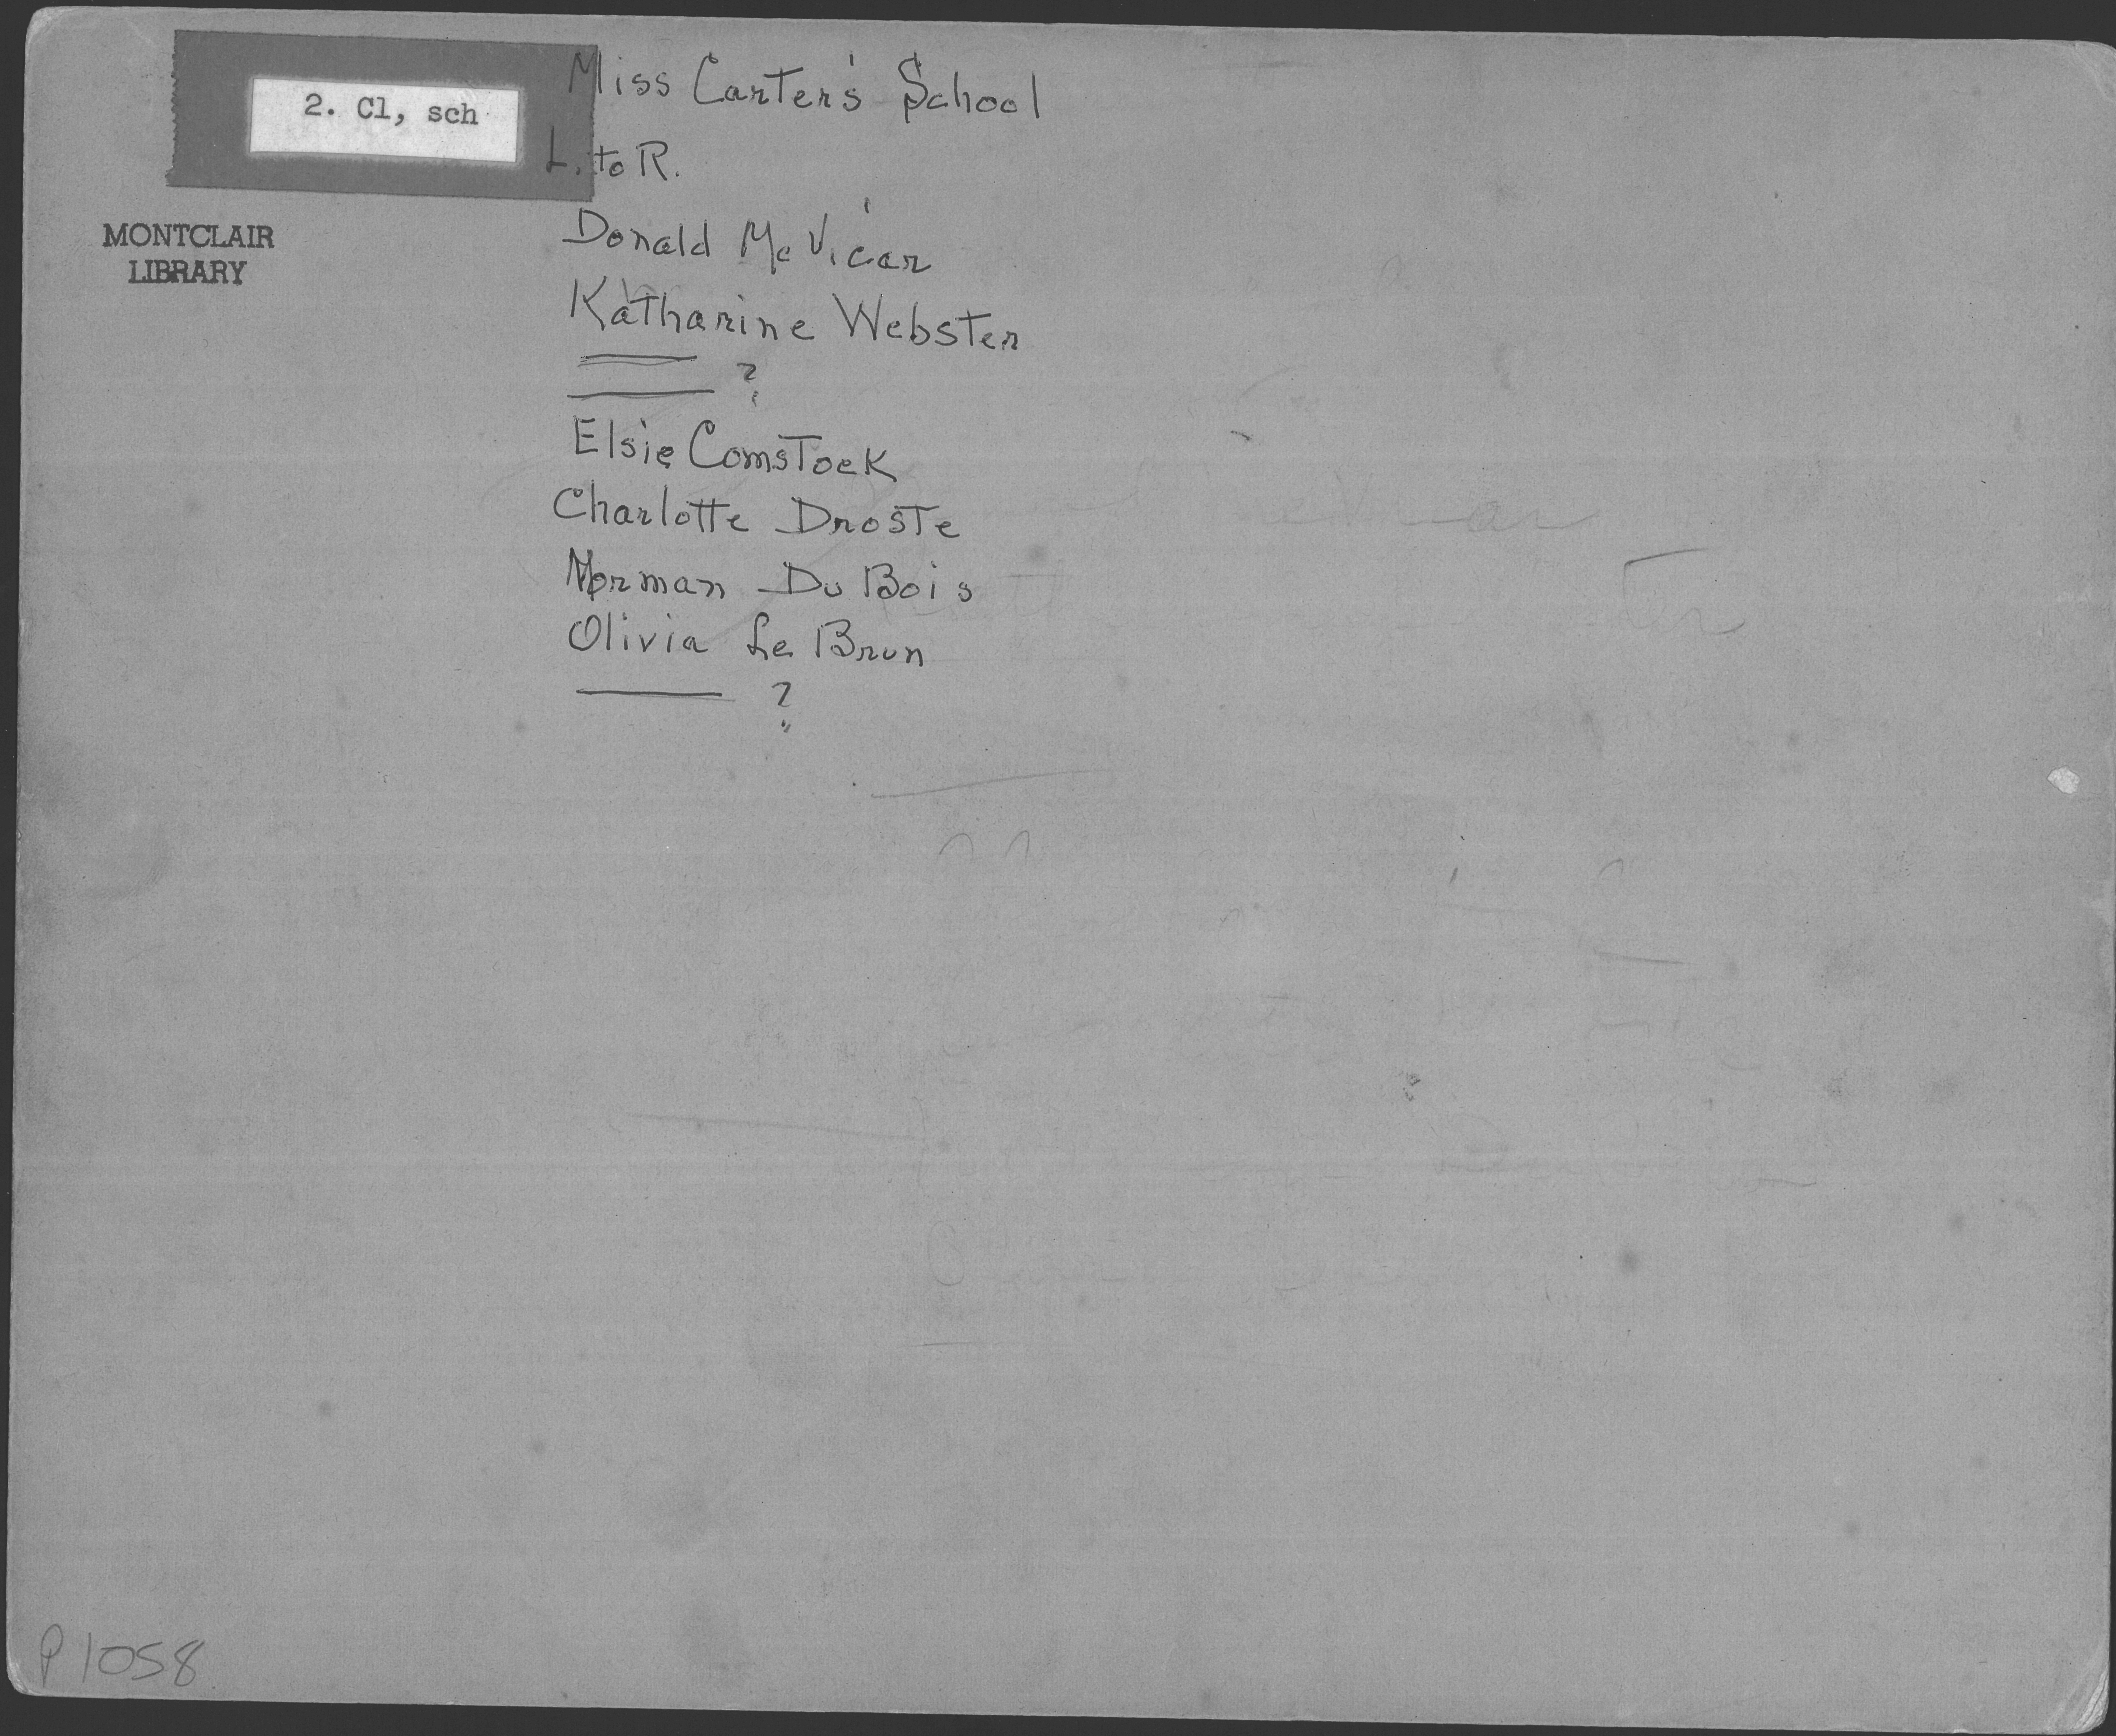 2. Cl, sch
MONTCLAIR
LIBRARY
Miss Carter's School
L. to R.
Donald McVicar
Katharine Webster
———
——— ?
Elsie Comstock
Charlotte Droste
Norman Du Bois
Olivia Le Brun
——— ?
P1058